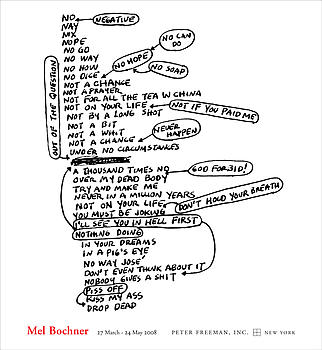 NO
NEGATIVE
NAY
NIX
NOPE
NO GO
NO CAN DO
NO WAY
NO HOW
NO HOPE
NO DICE
NO SOAP
OUT OF THE QUESTION
NOT A CHANCE
NOT A PRAYER
NOT FOR ALL THE TEA IN CHINA
NOT ON YOUR LIFE
NOT IF YOU PAID ME
NOT BY A LONG SHOT
NOT A BIT
NOT A WHIT
NEVER HAPPEN
NOT A CHANCE
UNDER NO CIRCUMSTANCES
A THOUSAND TIMES NO
GOD FORBID!
OVER MY DEAD BODY
TRY AND MAKE ME
NEVER IN A MILLION YEARS
DON'T HOLD YOUR BREATH
NOT ON YOUR LIFE
YOU MUST BE JOKING
I'LL SEE YOU IN HELL FIRST
NOTHING DOING
IN YOUR DREAMS
IN A PIG'S EYE
NO WAY JOSE'
DON'T EVEN THINK ABOUT IT
NOBODY GIVES A SHIT
PISS OFF
KISS MY ASS
DROP DEAD
Mel Bochner 27 March - 24 May 2008 PETER FREEMAN, INC. NEW YORK